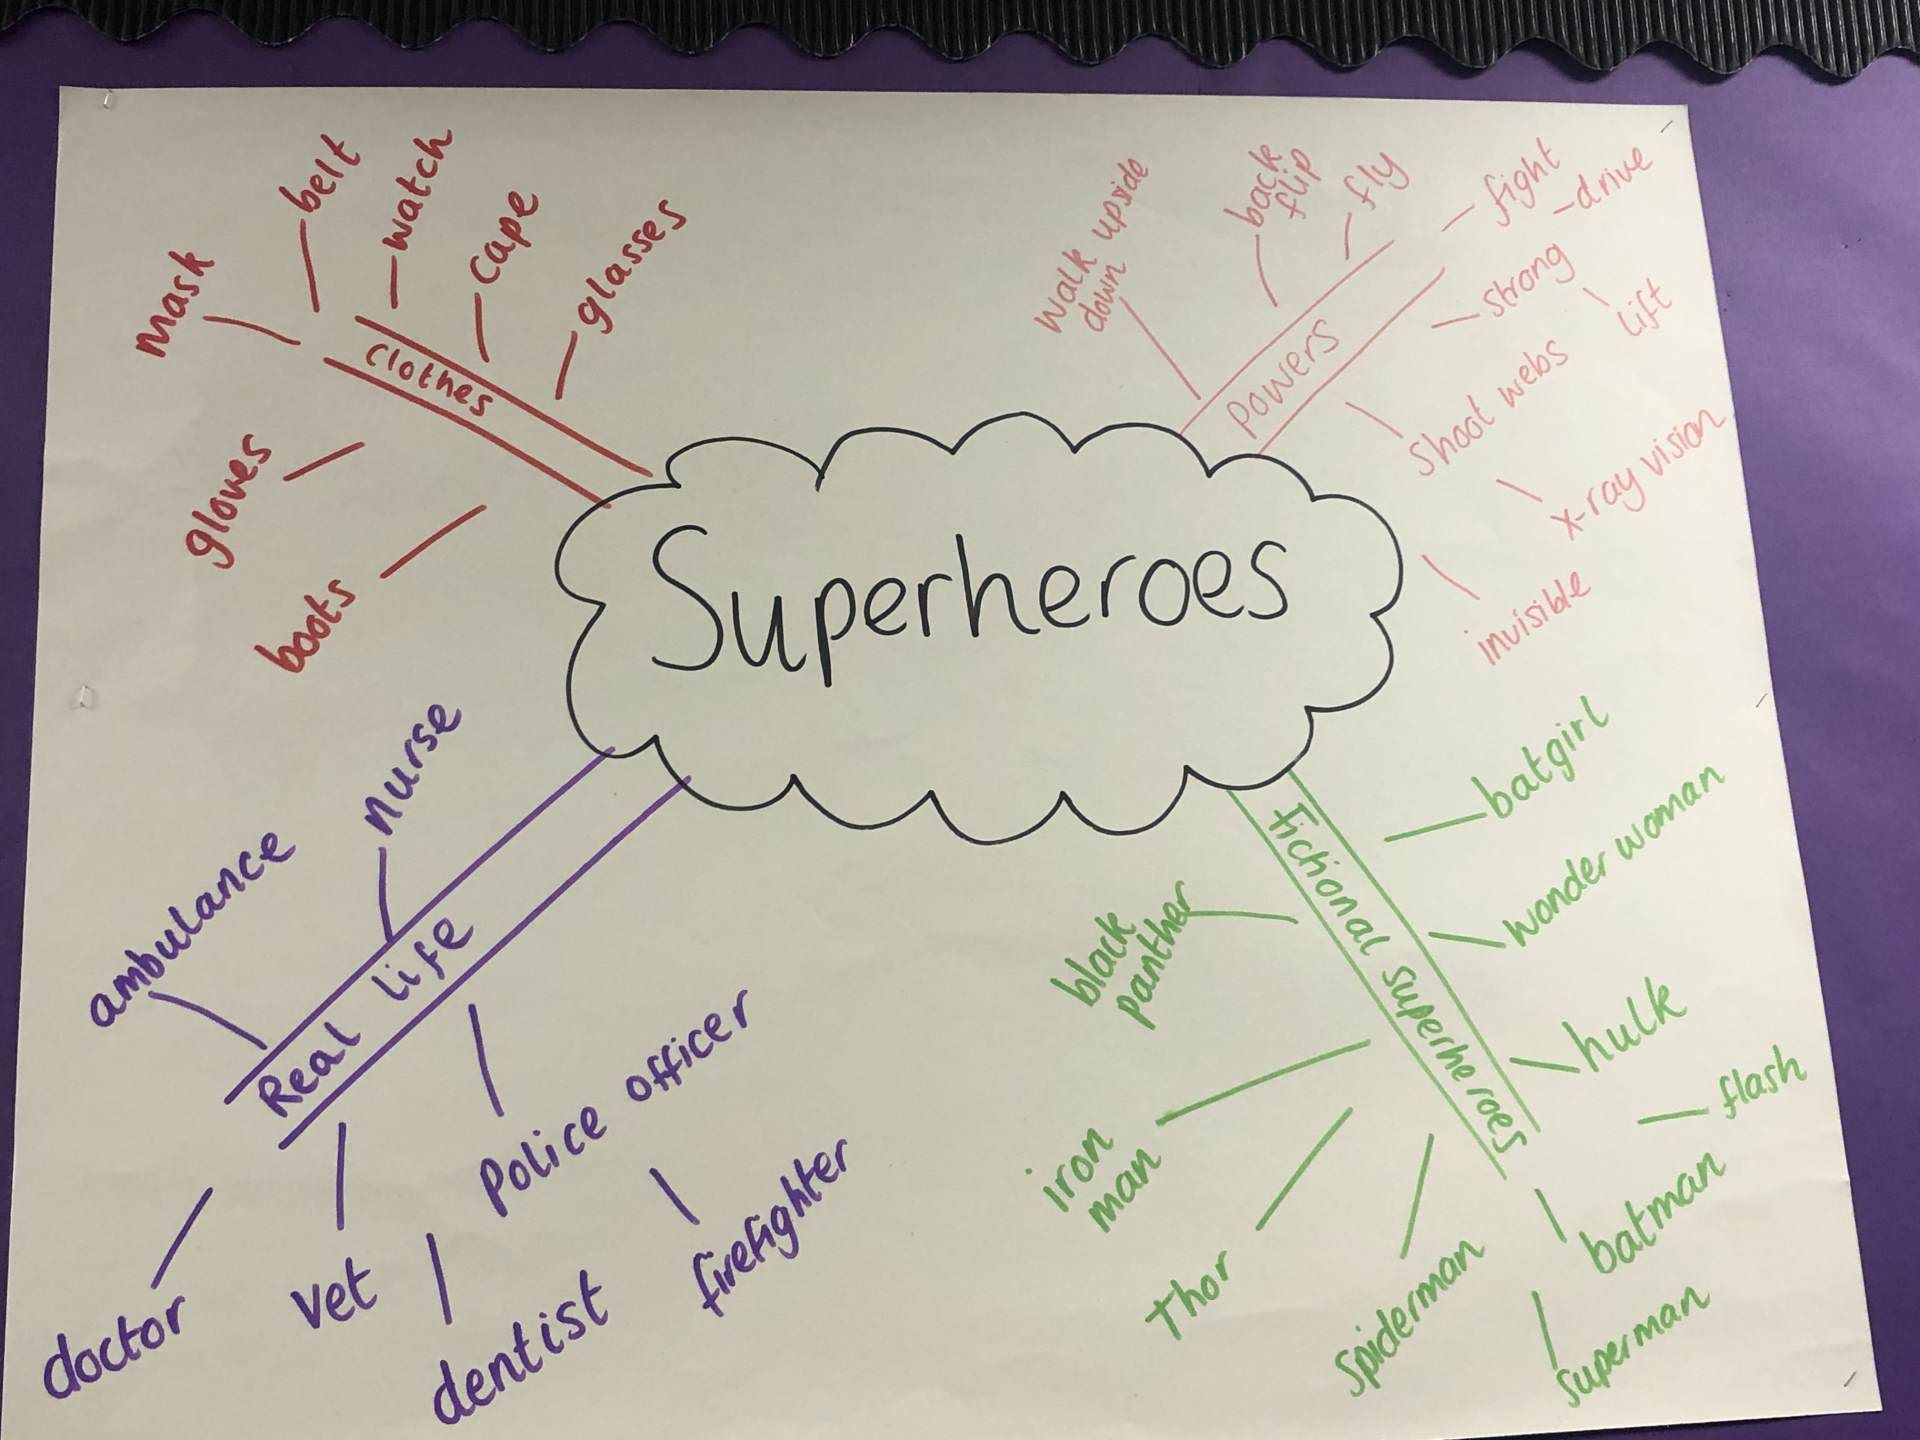 Superheroes
Clothes
mask
belt
watch
cape
glasses
gloves
boots
Powers
walk upside
down
back
flip
fly
fight
-drive
strong
lift
shoot webs
x-ray vision
invisible
Real life
ambulance
nurse
Police officer
firefighter
dentist
vet
doctor
Fictional superheroes
batgirl
wonder woman
hulk
flash
batman
superman
spiderman
Thor
iron
man
black
panther